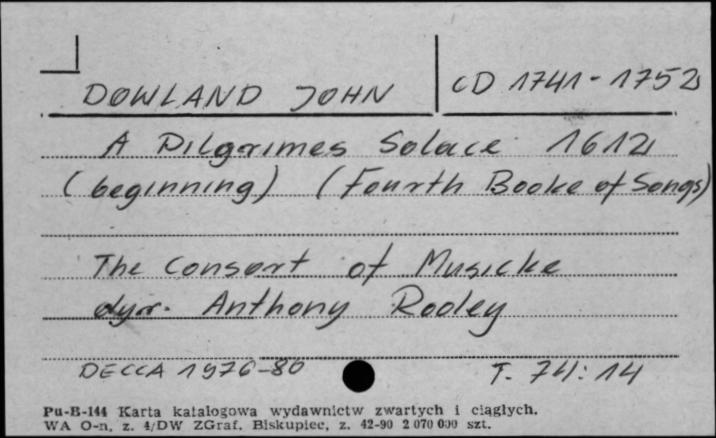 DOWLAND JOHN CD 1741-1752
A Pilgrimes Solace 1612
(beginning) (Fourth Booke of Songs)
The Consort of Musicke
dyr. Anthony Rooley
DECCA 1976-80 T. 74:14
Pu-B-144 Karta katalogowa wydawnictw zwartych i ciągłych.
WA O-n, z. 4/DW ZGraf. Biskupiec, z. 42-90 2 070 000 szt.